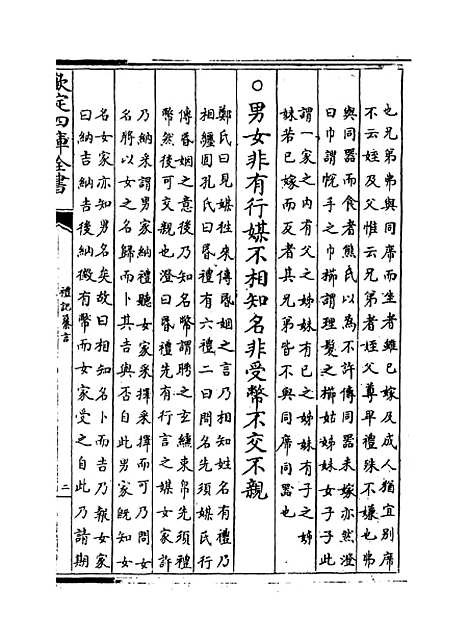 也兄弟弗與同席而坐者雖已嫁及成人猶宜别席
不云姪及父惟云兄弟者姪父尊卑禮殊不嫌也弗
與同器而食者熊氏以為不許傳同器未嫁亦然澄
曰巾謂帨手之巾櫛謂理髮之櫛姑姊妹女子子此
謂一家之内有父之姊妹有己之姊妹有子之姊
妹若已嫁而反者其兄弟皆不與同席同器也
○男女非有行媒不相知名非受幣不交不親
鄭氏曰見媒往來傳昬姻之言乃相知姓名有禮乃
相纏固孔氏曰昬禮有六禮二曰問名先須媒氏行
傳昬姻之意後乃知名幣謂聘之玄纁束帛先須禮
幣然後可交親也澄曰昬禮先有行言之媒女家許
乃納采謂男家納禮聽女家采擇采擇而可乃問女
名將以女之名歸而卜其吉與否自此男家既知女
名女家亦知男名矣故曰相知名卜而吉乃報女家
曰納吉納吉後納徵有幣而女家受之自此乃請期
欽定四庫全書
禮記纂言
二